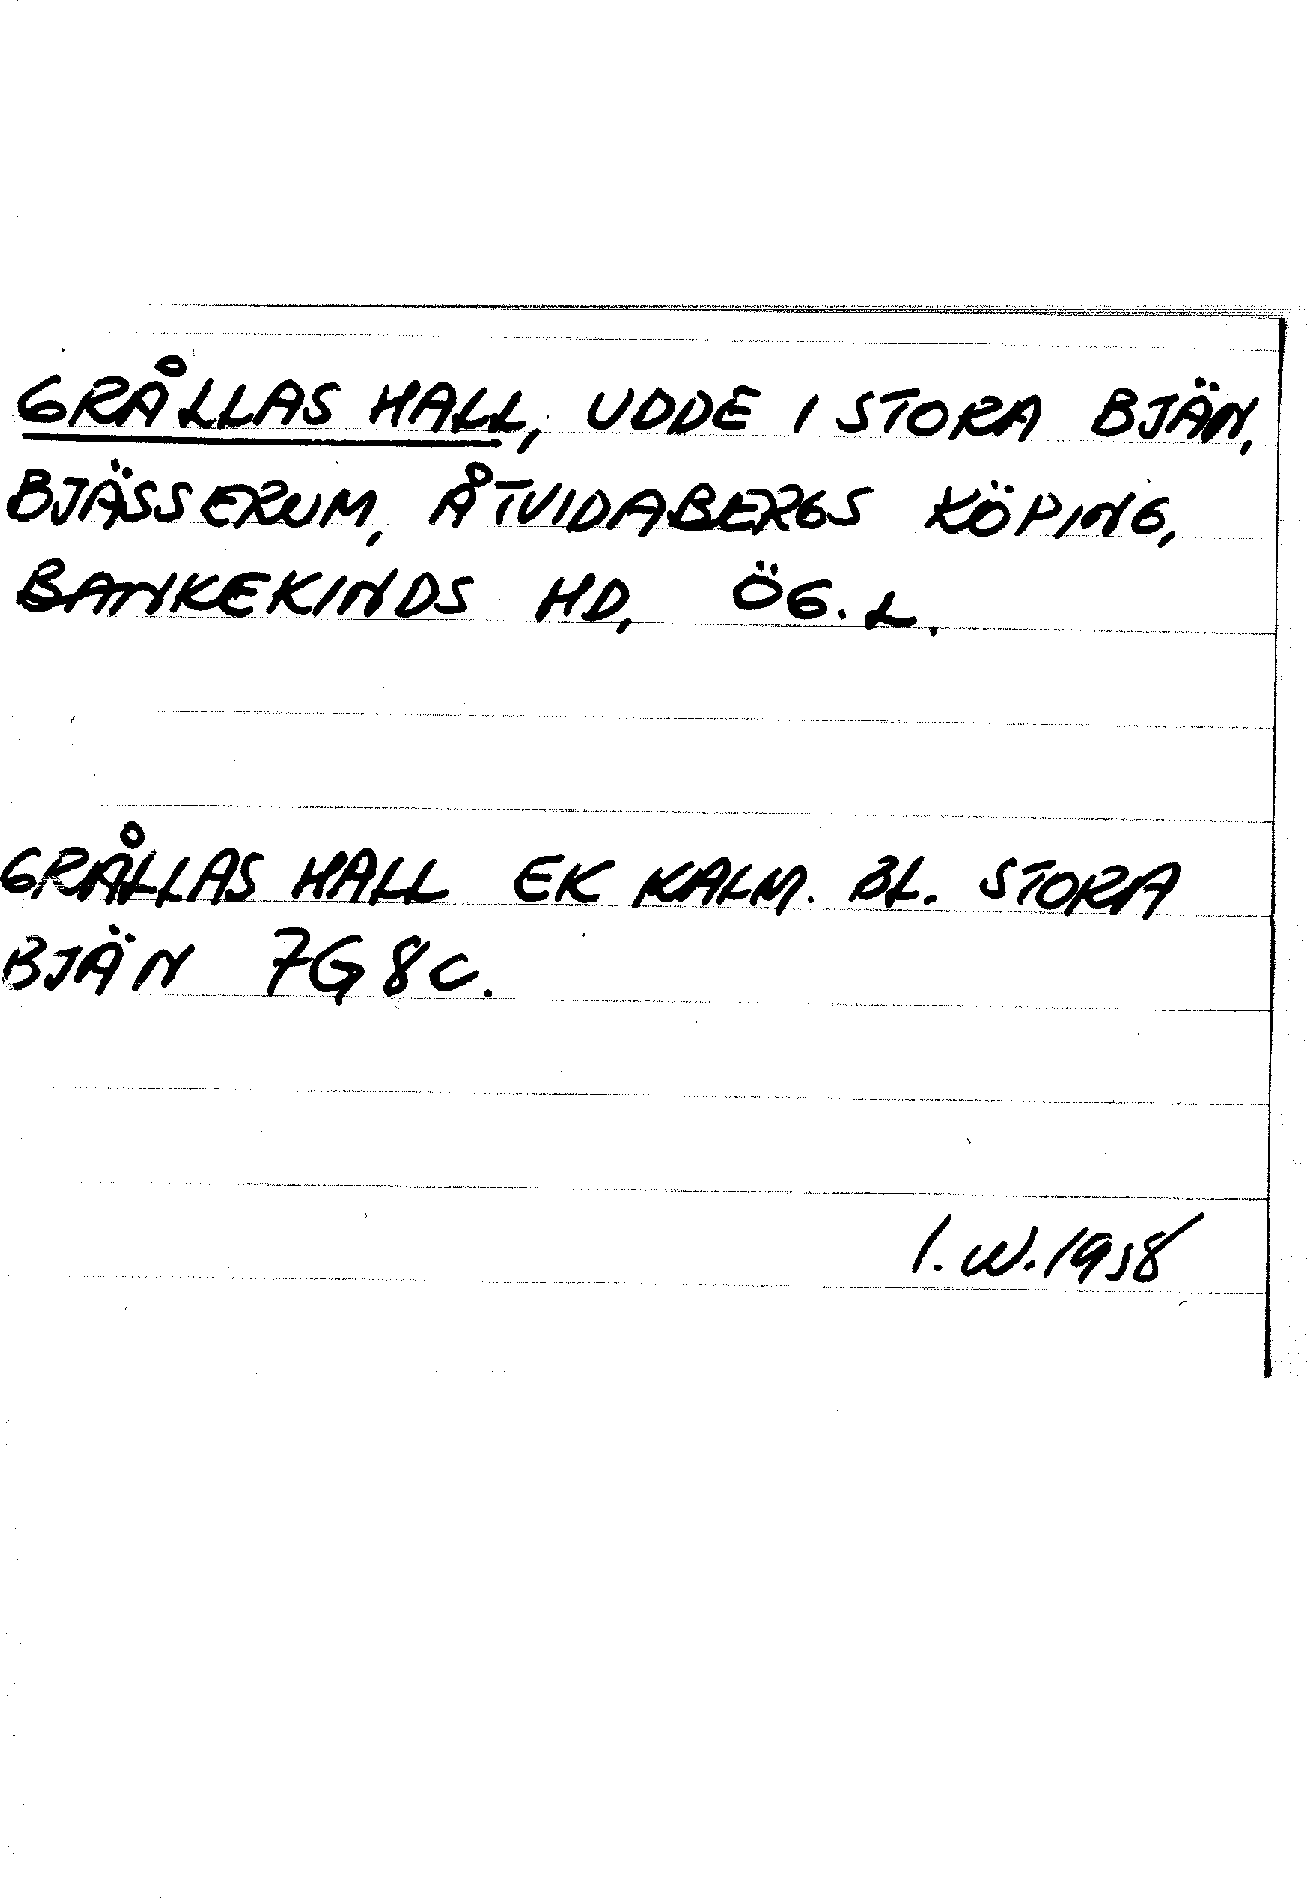 GRÅLLAS HALL, UDDE I STORA BJÄN,
BJÄSSERUM, ÅTVIDABERGS KÖPING,
BANKEKINDS HD, ÖG. L.
GRÅLLAS HALL EK KALM. BL. STORA
BJÄN 7G 8C.
I. W. 1958